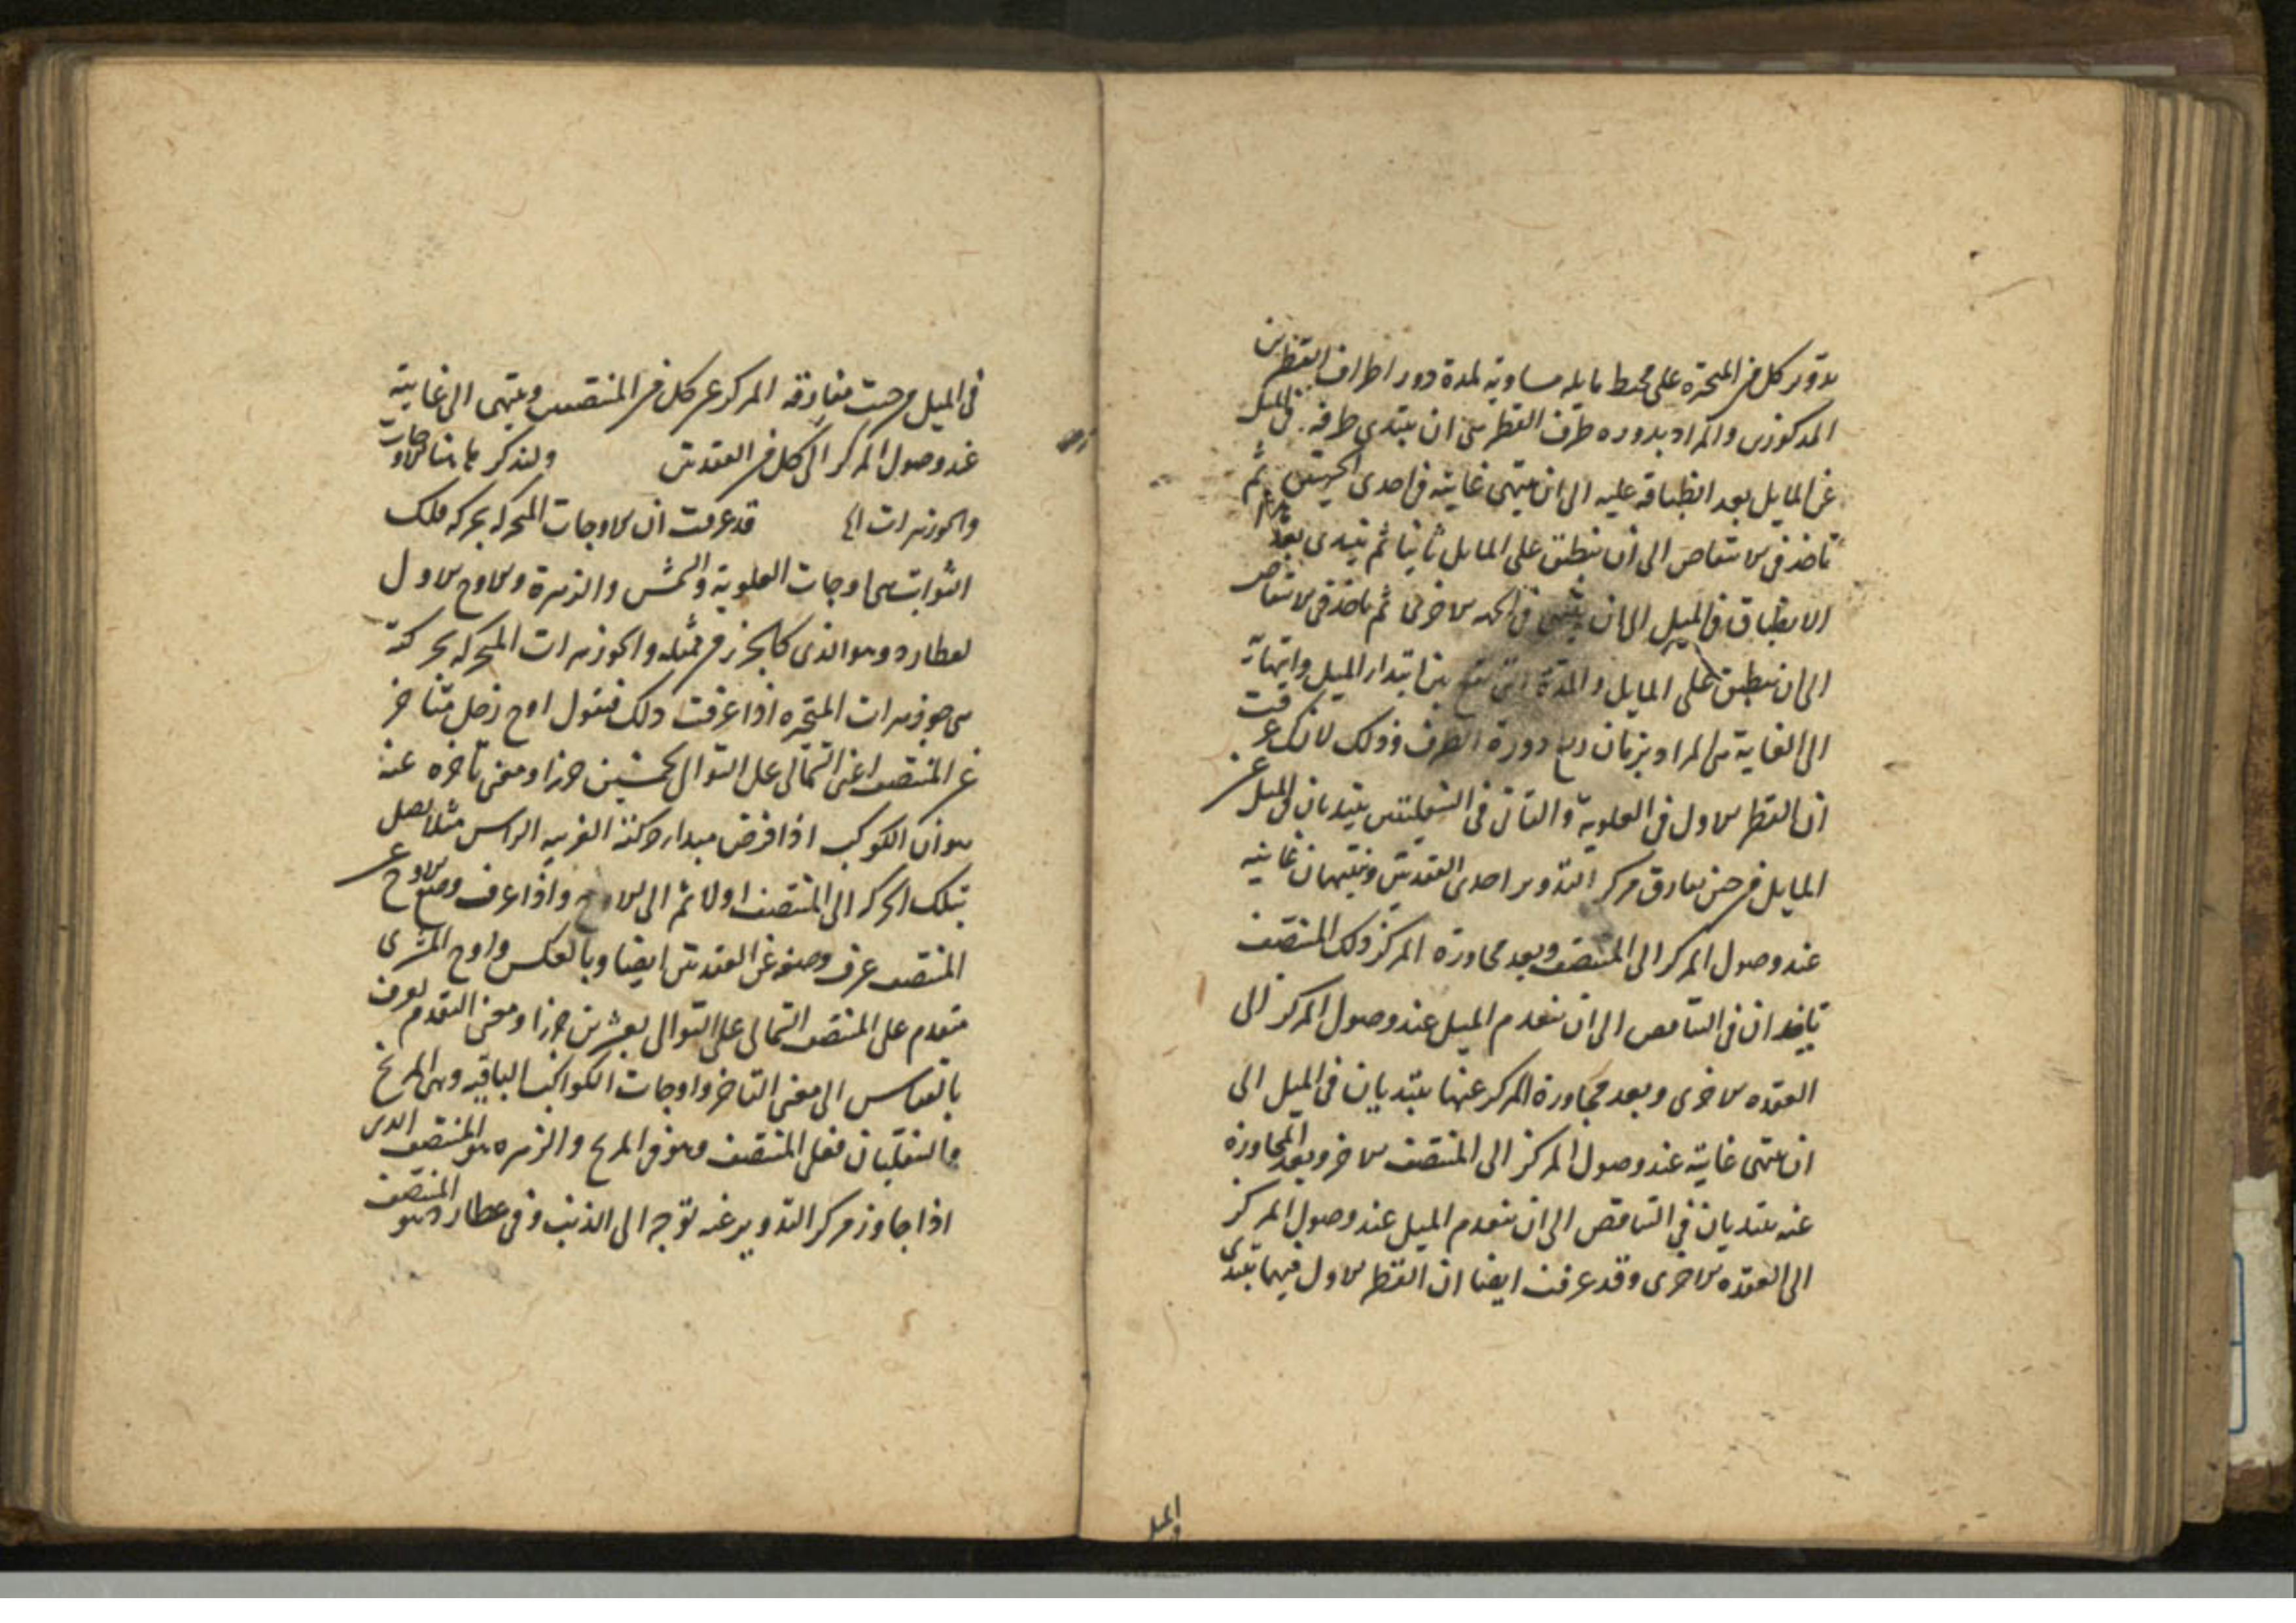 تدوير كل من المتحيرة على محيط مايله مساوية لمدة دور اطراف القطرين
المذكورين والمراد بدوره طرف القطر هى ان يبتدى طرفه فى الميل
عن المايل بعد انطباقه عليه الى ان ينتهى غايته فى احدى الجهتين ثم
تاخذ فى الانتقاص الى ان ينطبق على المايل ثانيا ثم يبتدى بعد
الانطباق فى الميل الى ان ينتهى فى الجهه الاخرى ثم ياخذ فى الانتقاص
الى ان ينطبق على المايل والمدة التى تقع بين ابتداء الميل وانتهائه
الى الغاية هى المراد بزمان ربع دورة الطرف وذلك لانك عرفت
ان القطر الاول فى العلوية والثانى فى السفليتين يبتديان فى الميل عن
المايل من حين يفارق مركز التدوير احدى العقدتين وينتهيان غايته
عند وصول المركز الى المنتصف وبعد مجاوزة المركز ذلك المنتصف
ياخذان فى التناقص الى ان ينعدم الميل عند وصول المركز الى
العقده الاخرى وبعد مجاوزة المركز عنها يبتديان فى الميل الى
ان ينتهى غايته عند وصول المركز الى المنتصف الاخر وبعد المجاوزة
عنه يبتديان فى التناقص الى ان ينعدم الميل عند وصول المركز
الى العقده الاخرى وقد عرفت ايضا ان القطر الاول فيهما يبتدى
الميل
فى الميل من حيث مفارقة المركز عن كل من المنتصفين وينتهى الى غايته
عند وصول المركز الى كل من العقدتين ولنذكر ها هنا الاوجات
والجوزهرات قد عرفت ان الاوجات المتحركه بحركه فلك
الثوابت هى اوجات العلوية والشمس والزهرة والاوج الاول
لعطارد وهو الذى كالجزء من ممثله والجوزهرات المتحركه بحركته
هى جوزهرات المتحيره اذا عرفت ذلك فنقول اوج زحل متاخر
عن المنتصف اعنى الشمالى على التوالى بخمسين جزءا ومعنى تاخره عنه
هو ان الكوكب اذا فرض مبداء حركته الغربيه الراس مثلا يصل
بتلك الحركه الى المنتصف اولا ثم الى الاوج واذا عرف وضع الاوج عن
المنتصف عرف وضعه عن العقدتين ايضا وبالعكس واوج المشترى
متقدم على المنتصف الشمالى على التوالى بعشرين جزءا ومعنى التقدم يعرف
بالقياس الى معنى التاخر واوجات الكواكب الباقيه وهى المريخ
والسفليان فعلى المنتصف وهو فى المريخ والزهره هو المنتصف الذى
اذا جاوز مركز التدوير عنه توجه الى الذنب وفى عطارد هو المنتصف